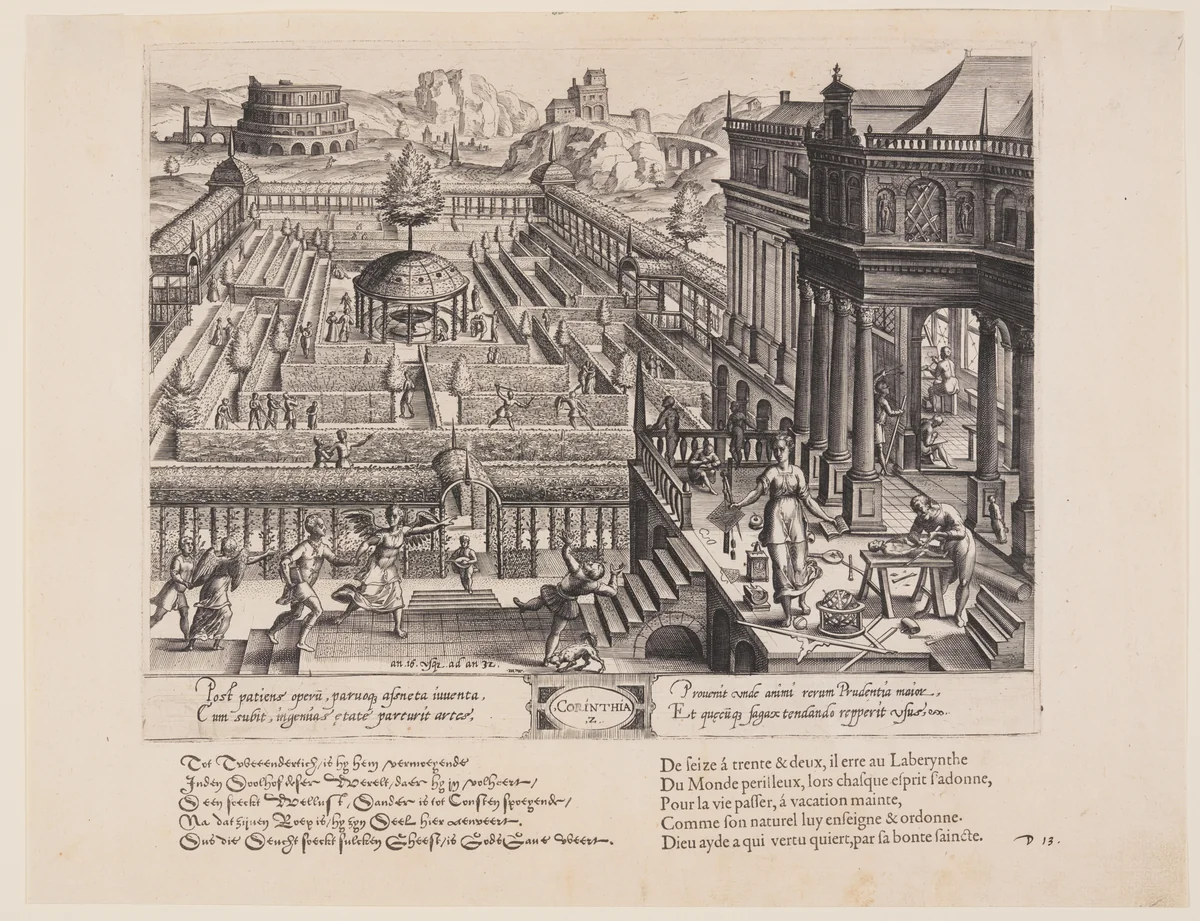 an. 16. vsqz ad an 32.
Post patiens operū, paruoq3 aſsueta iuuenta,
Cum subit, ingenuas ętate parturit artes,
CORINTHIA
.2.
Prouenit vnde animi rerum Prudentia maior,
Et quęcūq3 sagax tendando repperit vsus,
Tot Tvveeendertich, is hy hem vermoeyende
Inden Doolhof deser Werelt, daer hy in volheert,
D'een soeckt Wellust, D'ander is tot Consten spoeyende,
Na dat zijnen Roep is, hy zyn Seel hier
Dus die Deucht soeckt sulcken Gheest, is Gods Gaue weert.
De ſeize á trente & deux, il erre au Laberynthe
Du Monde perilleux, lors chaſque eſprit ſ'adonne,
Pour la vie paſſer, á vacation mainte,
Comme ſon naturel luy enſeigne & ordonne.
Dieu ayde a qui vertu quiert, par ſa bonte ſaincte.
D 13.